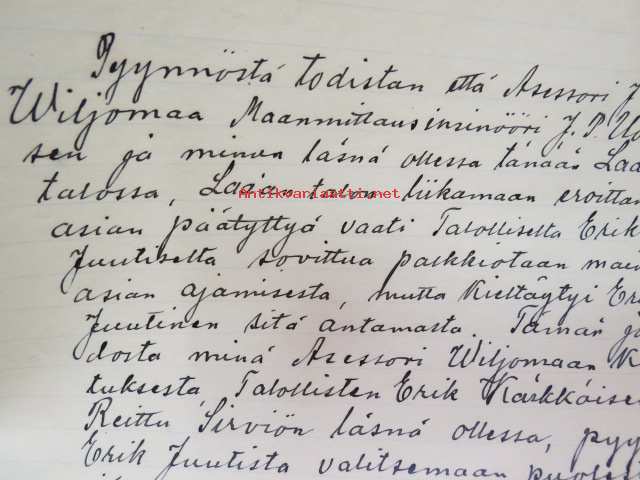 Pyynnöstä todistan että Asessori J
Wiljomaa Maanmittausinsinööri J. P. Uo
sen ja minun läsnä ollessa tänään Laa
talossa, Lasan talon liikamaan eroittam
antikvariaatti.net
asian päätyttyä vaati Talolliselta Erik
Juutiselta sovittua palkkiotaan mai
asian ajamisesta, mutta kieltäytyi Er
Juutinen sitä antamasta. Tämän jo
dosta minä Asessori Wiljomaan K
tuksesta, Talollisten Erik Kärkkäise
Reittu Sirviön läsnä ollessa, pyy
Erik Juutista valitsemaan puolest